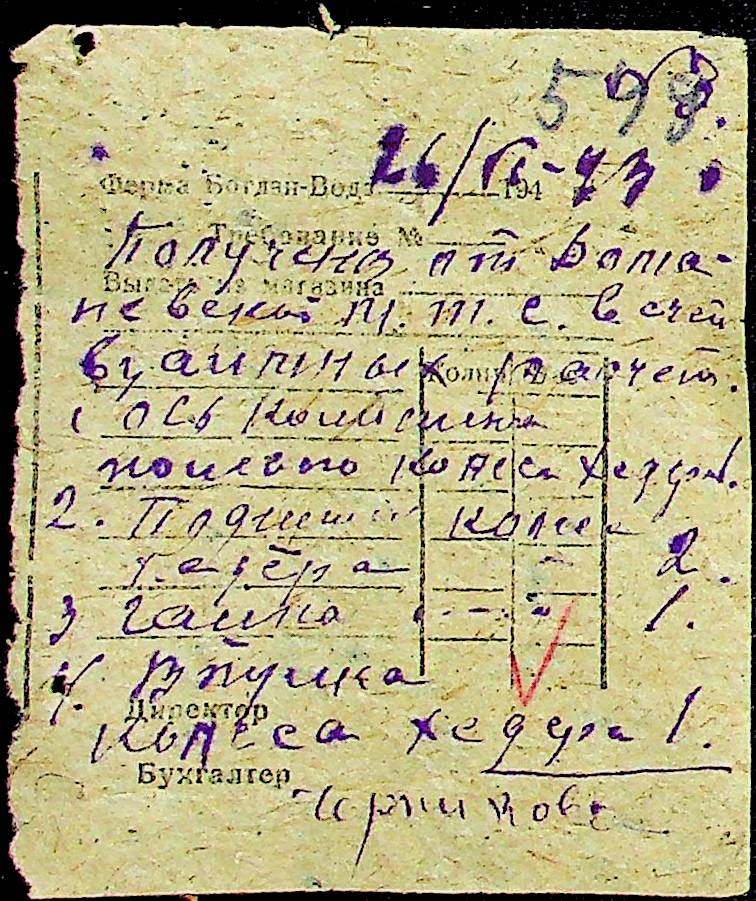 598
26/VI-43
Ферма Богдан-Вода 194
Требование №
Получено от Бота-
Выдать из магазина
невской м.т.с. в счет
взаимных расчет.
1 ось
полевого колеса хедера 1.
2. Подшип колес
хедера " 2.
3 гайка " 1.
4. Втулка
Директор
колеса хедера 1.
Бухгалтер